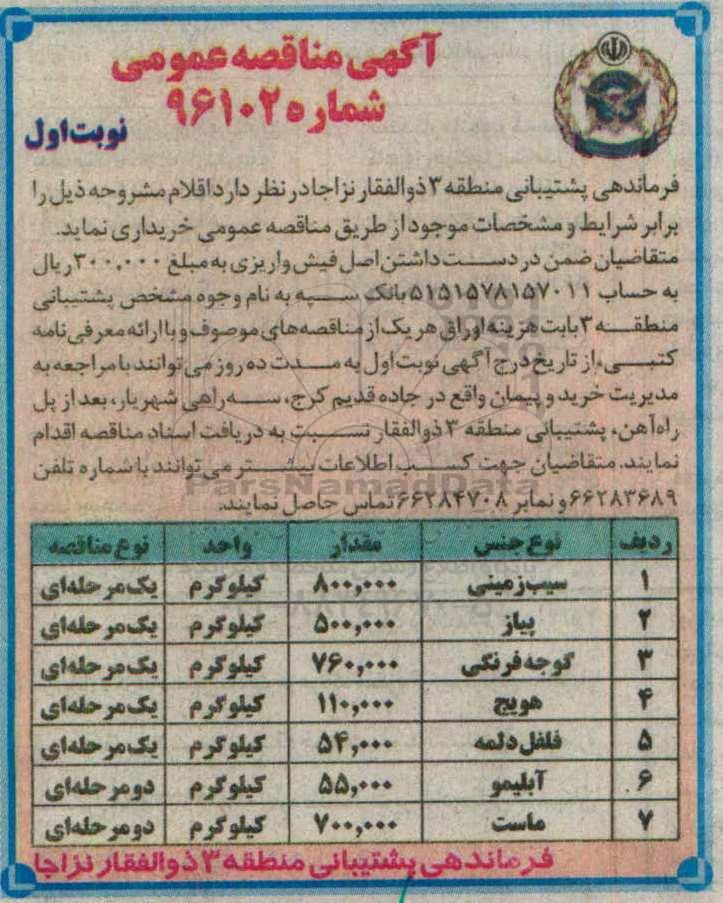 آگهی مناقصه عمومی
شماره ۹۶۱۰۲
نوبت اول
فرماندهی پشتیبانی منطقه ۳ ذوالفقار نزاجا در نظر دارد اقلام مشروحه ذیل را
برابر شرایط و مشخصات موجود از طریق مناقصه عمومی خریداری نماید.
متقاضیان ضمن در دست داشتن اصل فیش واریزی به مبلغ ۳۰۰,۰۰۰ ریال
به حساب ۵۱۵۱۵۷۸۱۵۷۰۱۱ بانک سپه به نام وجوه مشخص پشتیبانی
منطقه ۳ بابت هزینه اوراق هر یک از مناقصه‌های موصوف و با ارائه معرفی نامه
کتبی، از تاریخ درج آگهی نوبت اول به مدت ده روز می‌توانند با مراجعه به
مدیریت خرید و پیمان واقع در جاده قدیم کرج، سه‌راهی شهریار، بعد از پل
راه‌آهن، پشتیبانی منطقه ۳ ذوالفقار نسبت به دریافت اسناد مناقصه اقدام
نمایند. متقاضیان جهت کسب اطلاعات بیشتر می‌توانند با شماره تلفن
۶۶۲۸۳۶۸۹ و نمابر ۶۶۲۸۴۷۰۸ تماس حاصل نمایند.
ParsNamadData
ردیف نوع جنس مقدار واحد نوع مناقصه
۱ سیب‌زمینی ۸۰۰,۰۰۰ کیلوگرم یک‌مرحله‌ای
۲ پیاز ۵۰۰,۰۰۰ کیلوگرم یک‌مرحله‌ای
۳ گوجه‌فرنگی ۷۶۰,۰۰۰ کیلوگرم یک‌مرحله‌ای
۴ هویج ۱۱۰,۰۰۰ کیلوگرم یک‌مرحله‌ای
۵ فلفل دلمه ۵۴,۰۰۰ کیلوگرم یک‌مرحله‌ای
۶ آبلیمو ۵۵,۰۰۰ کیلوگرم دومرحله‌ای
۷ ماست ۷۰۰,۰۰۰ کیلوگرم دومرحله‌ای
فرماندهی پشتیبانی منطقه ۳ ذوالفقار نزاجا